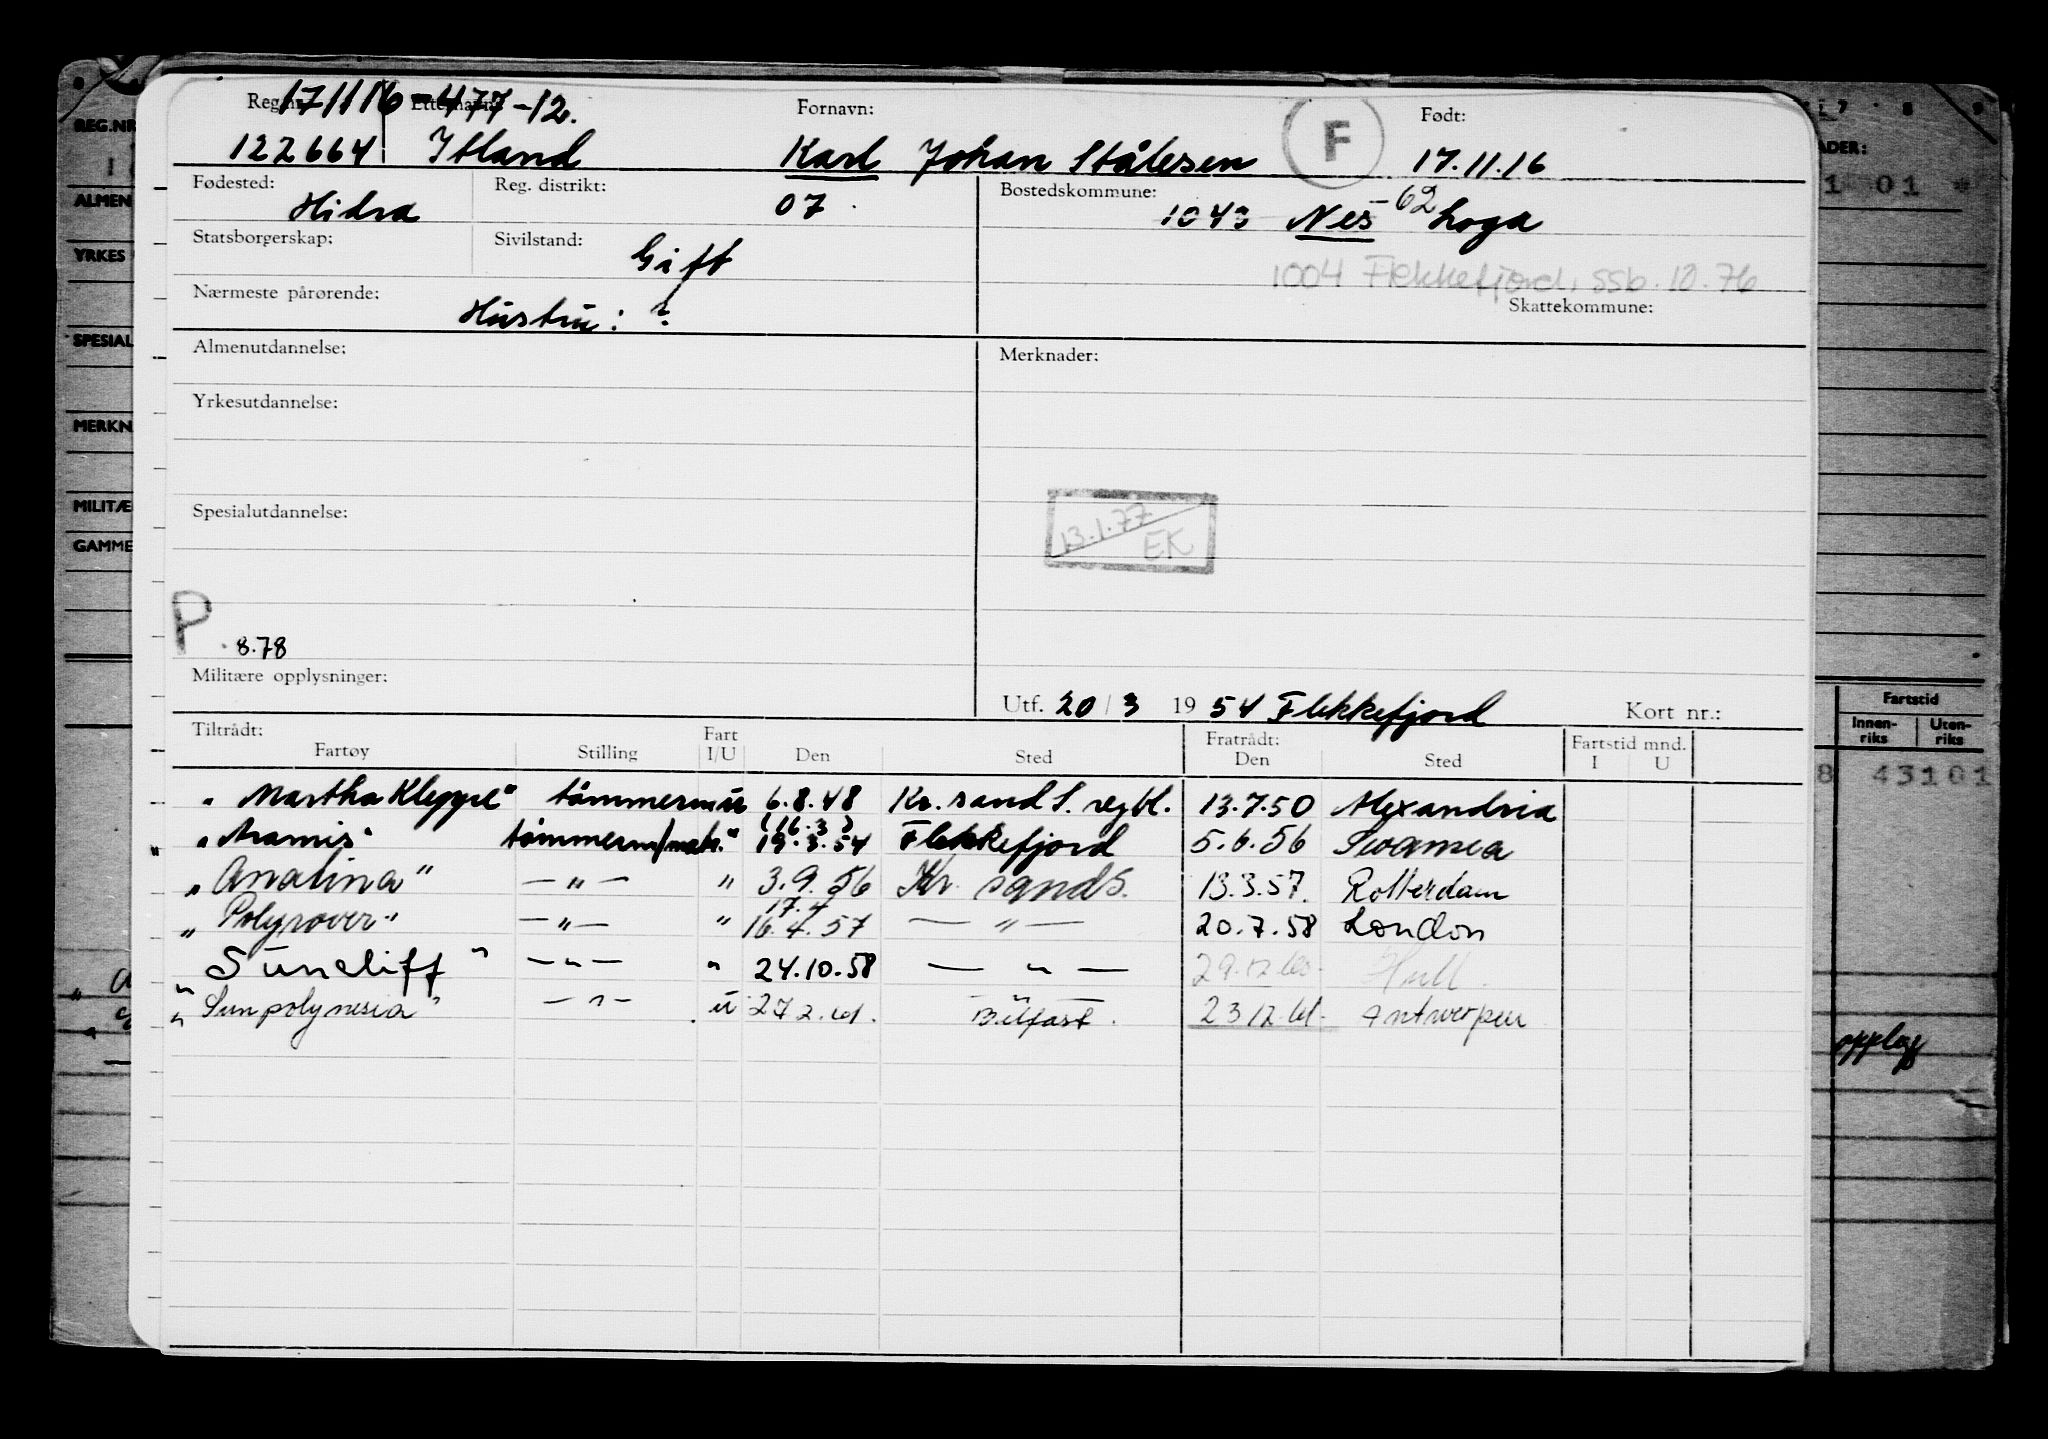 Reg.nr. 171116-477-12. Etternavn: Fornavn: F Født:
122664 Itland Karl Johan Stålesen 17.11.16
Fødested: Reg. distrikt: Bostedskommune:
Hidra 07 1043 Nes -62 Loga
Statsborgerskap: Sivilstand: Gift
1004 Flekkefjord, ssb. 10.76
Nærmeste pårørende: Hustru: ? Skattekommune:
Almenutdannelse: Merknader:
Yrkesutdannelse:
13.1.77 EK
Spesialutdannelse:
P. 8.78
Militære opplysninger:
Utf. 20/3 1954 Flekkefjord Kort nr.:
Tiltrådt: Fartøy Stilling Fart I/U Den Sted Fratrådt: Den Sted Fartstid mnd. I U
" Martha Kleppe" tømmerm u 6.8.48 Kr. sand S. regbl. 13.7.50 Alexandria
(16.3)
" Aramis" tømmerm/matr. " 19.3.54 Flekkefjord 5.6.56 Swansea
" Anatina" —"— " 3.9.56 Kr. sand S. 13.3.57. Rotterdam
17.4
" Polyrover" —"— " 16.4.57 —"— 20.7.58 London
" Suncliff" —"— " 24.10.58 —"— 29.12.60. Hull.
" Sunpolynesia" —"— u 27 2.61. Belfast. 23 12.61. Antwerpen
REG.NR
ALMEN
YRKES
SPESIAL
MERKN
MILITÆ
GAMME
7 8 9
ADER:
1 01 *
Fartstid
Innen-riks Uten-riks
8 43101
opplag